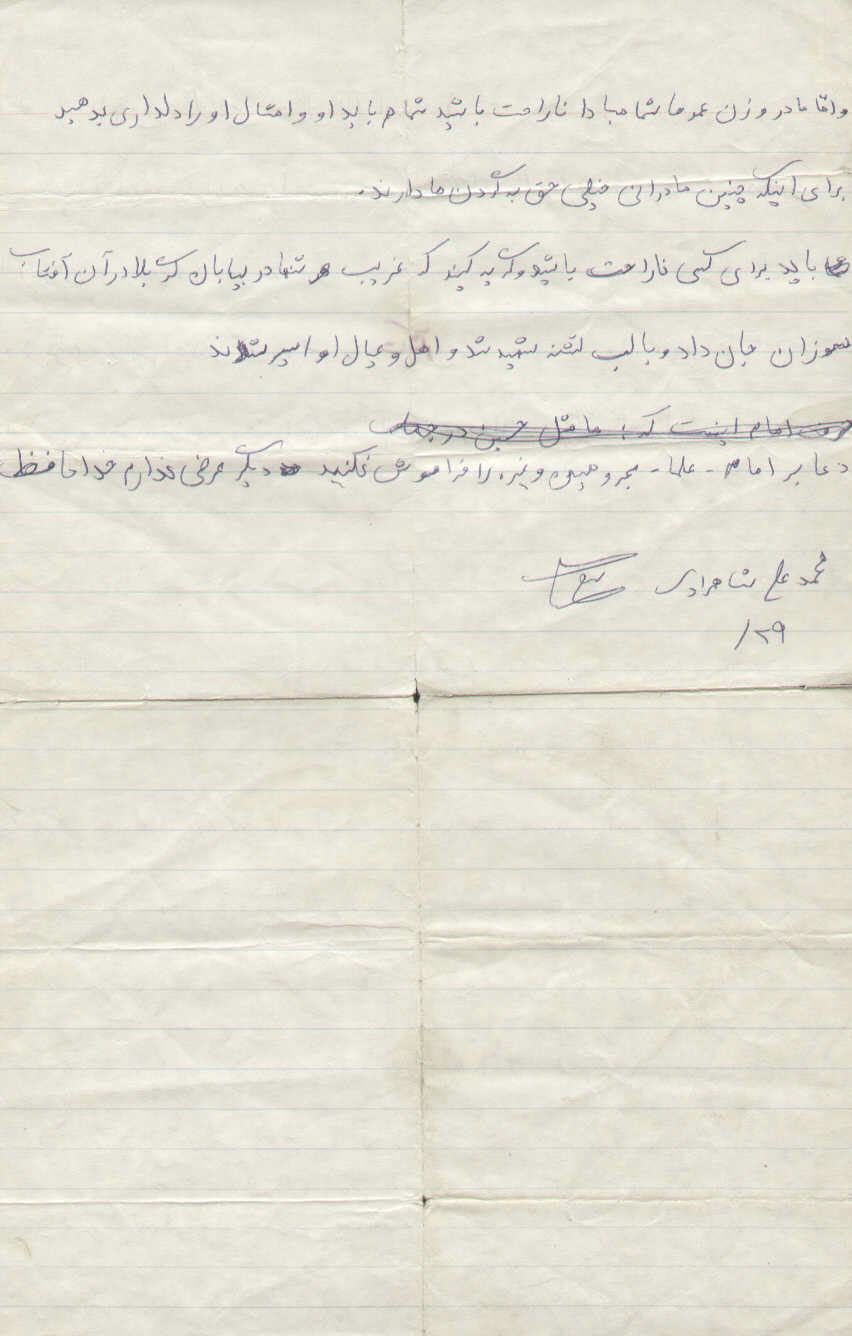 و اما مادر و زن عمو ما شما مبادا ناراحت باشید شما هم باید او و امثال او را دلداری بدهید
برای اینکه چنین مادرانی خیلی حق به گردن ما دارند.
باید برای کسی ناراحت باشید و گریه کنید که غریب و تنها در بیابان کربلا در آن آفتاب
سوزان جان داد و با لب تشنه شهید شد و اهل و عیال او اسیر شدند
امام اینست که: ما مثل حسین در جنگ
دعا بر امام - علما - مجروحین و غیره را فراموش نکنید دیگر عرضی ندارم خدا حافظ
محمد علی شاهمرادی
/۲۹